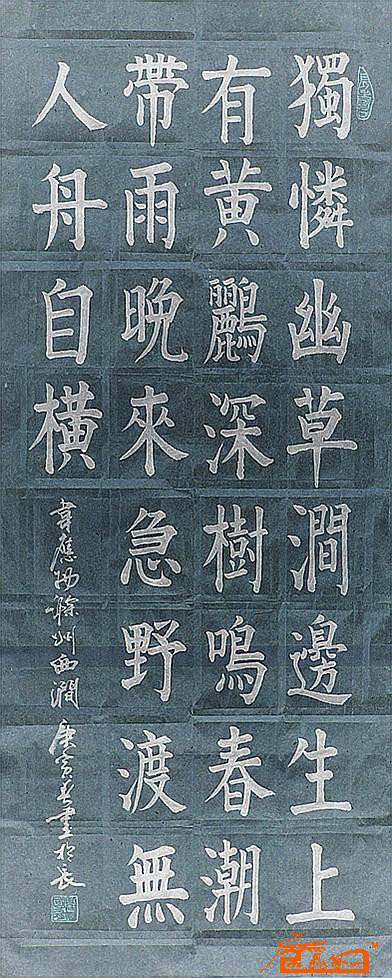 獨憐幽草澗邊生上
有黄鸝深樹鳴春潮
帶雨晚來急野渡無
人舟自橫
韋應物滁州西澗 庚寅春書於長